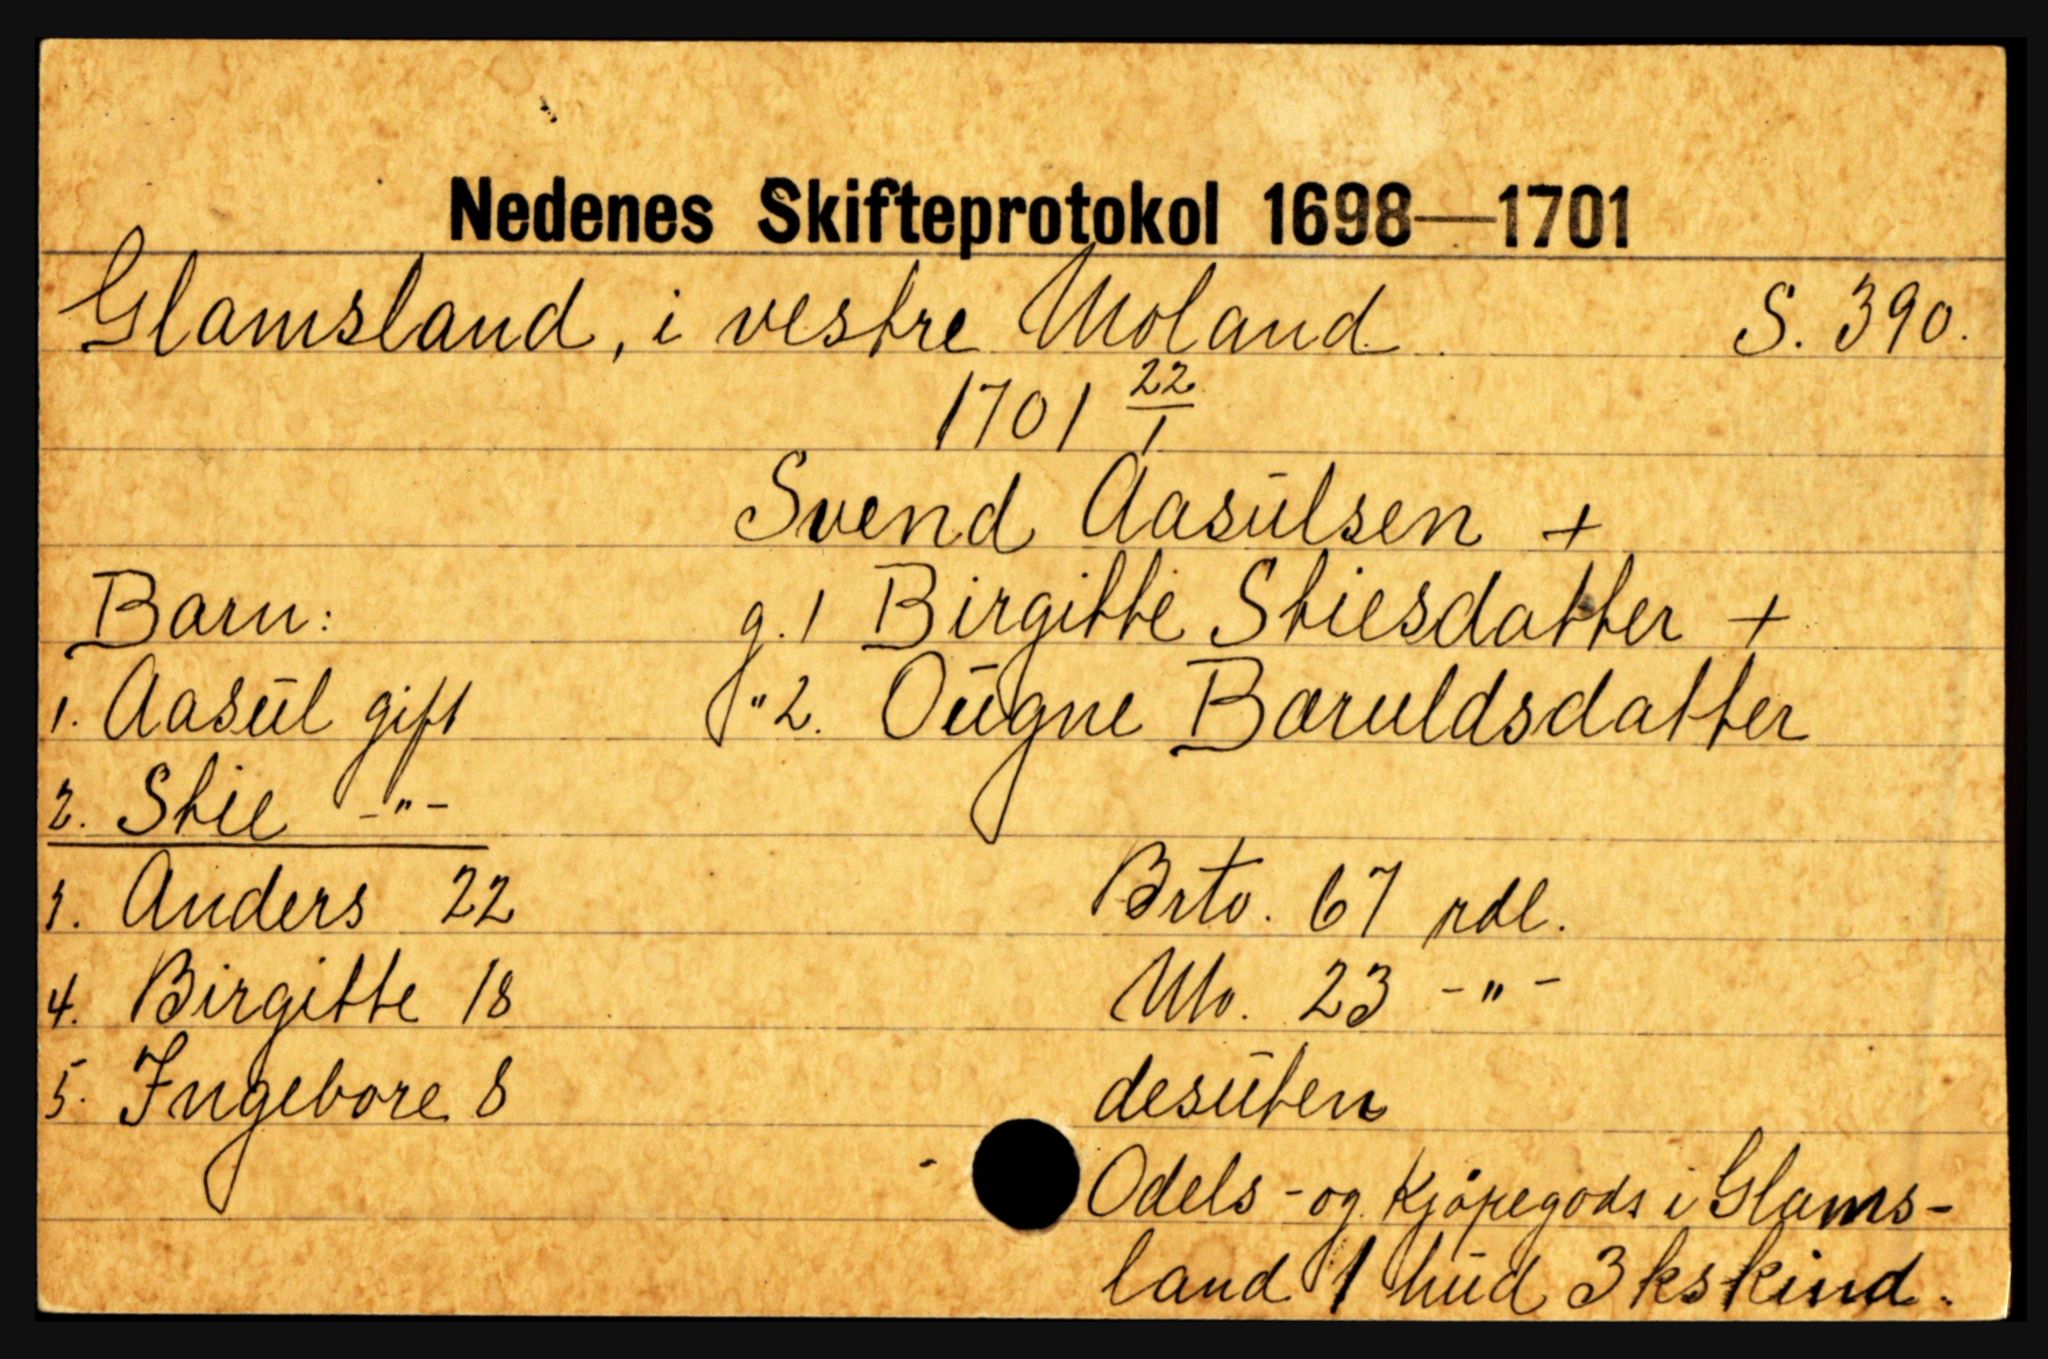 Nedenes Skifteprotokol 1698—1701
Glamsland, i vestre Moland. S. 390.
1701 22/1
Svend Aasūlsen +
Barn: g. 1 Birgitte Stiesdatter +
1. Aasūl gift " 2. Oūgne Baruldsdatter
2. Stie -"-
3. Anders 22 Brto. 67 rdl.
4. Birgitte 18 Nto. 23 -"-
5. Ingebore 8 desūten
Odels - og Kjöpegods i Glams-
land 1 hūd 3 kskind.